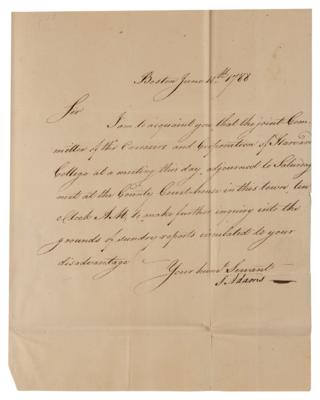 Boston June 18th 1788
Sir
I am to acquaint you that the joint Com-
mittee of the Overseers and Corporation of Harvard
College at a meeting this day adjourned to Saturday
next at the County Court-house in this town, ten
oClock A.M. to make further enquiry into the
grounds of sundry reports circulated to your
disadvantage
Your hum Servant
S. Adams